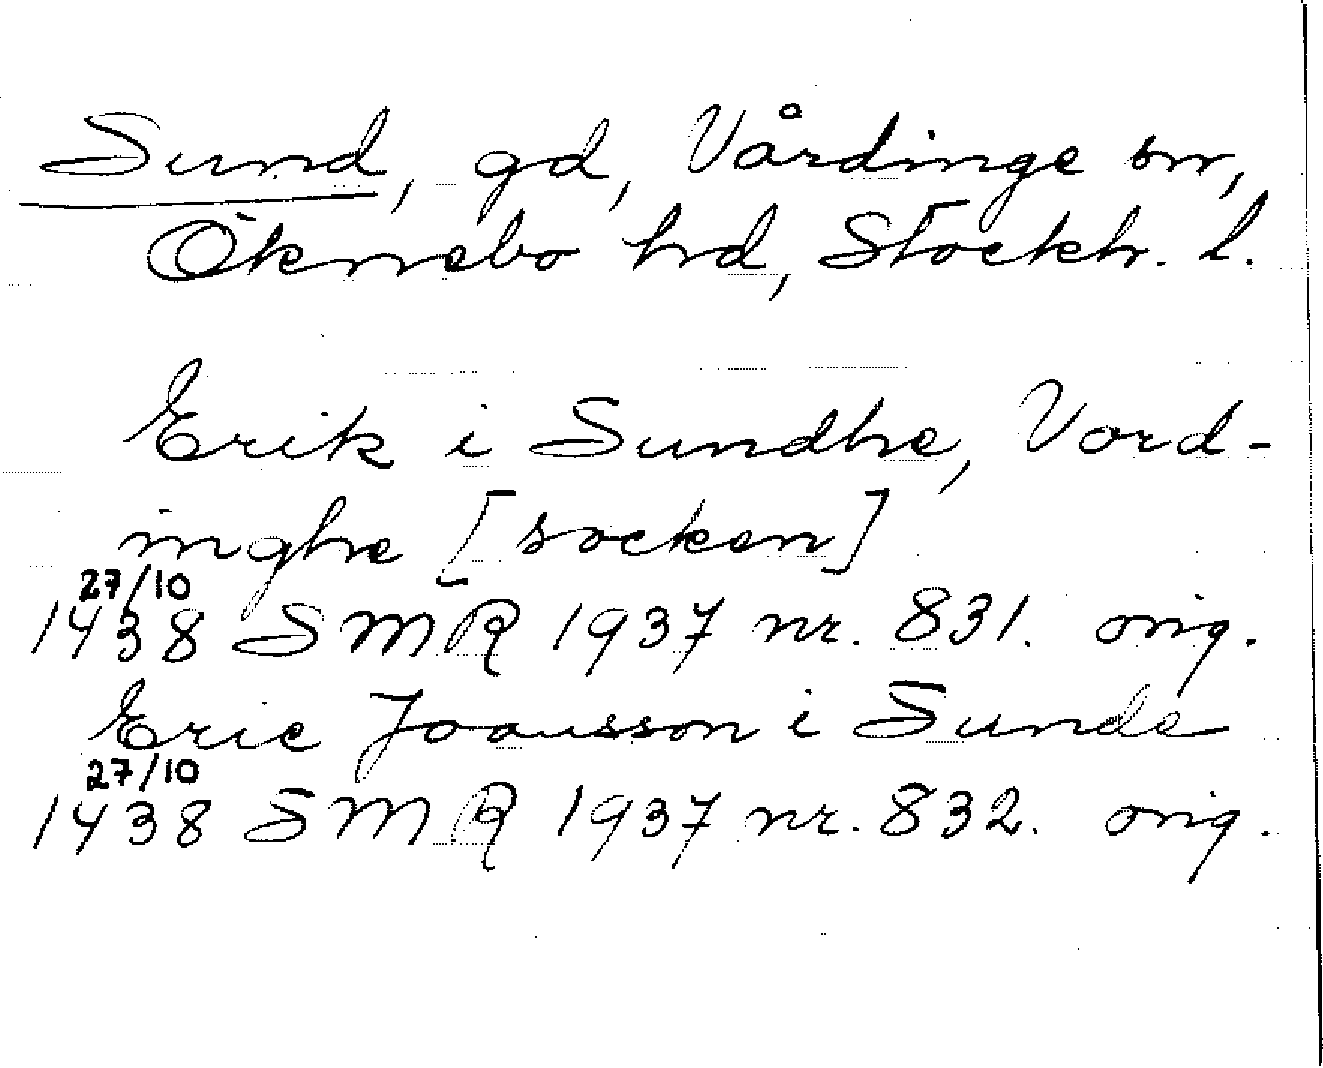 Sund, gd, Vårdinge sn,
Öknebo hd, Stockh. l.
Erik i Sundhe, Vord-
inghe [socken]
27/10
1438 SMR 1937 nr. 831. orig.
Eric Joausson i Sunde
27/10
1438 SMR 1937 nr. 832. orig.